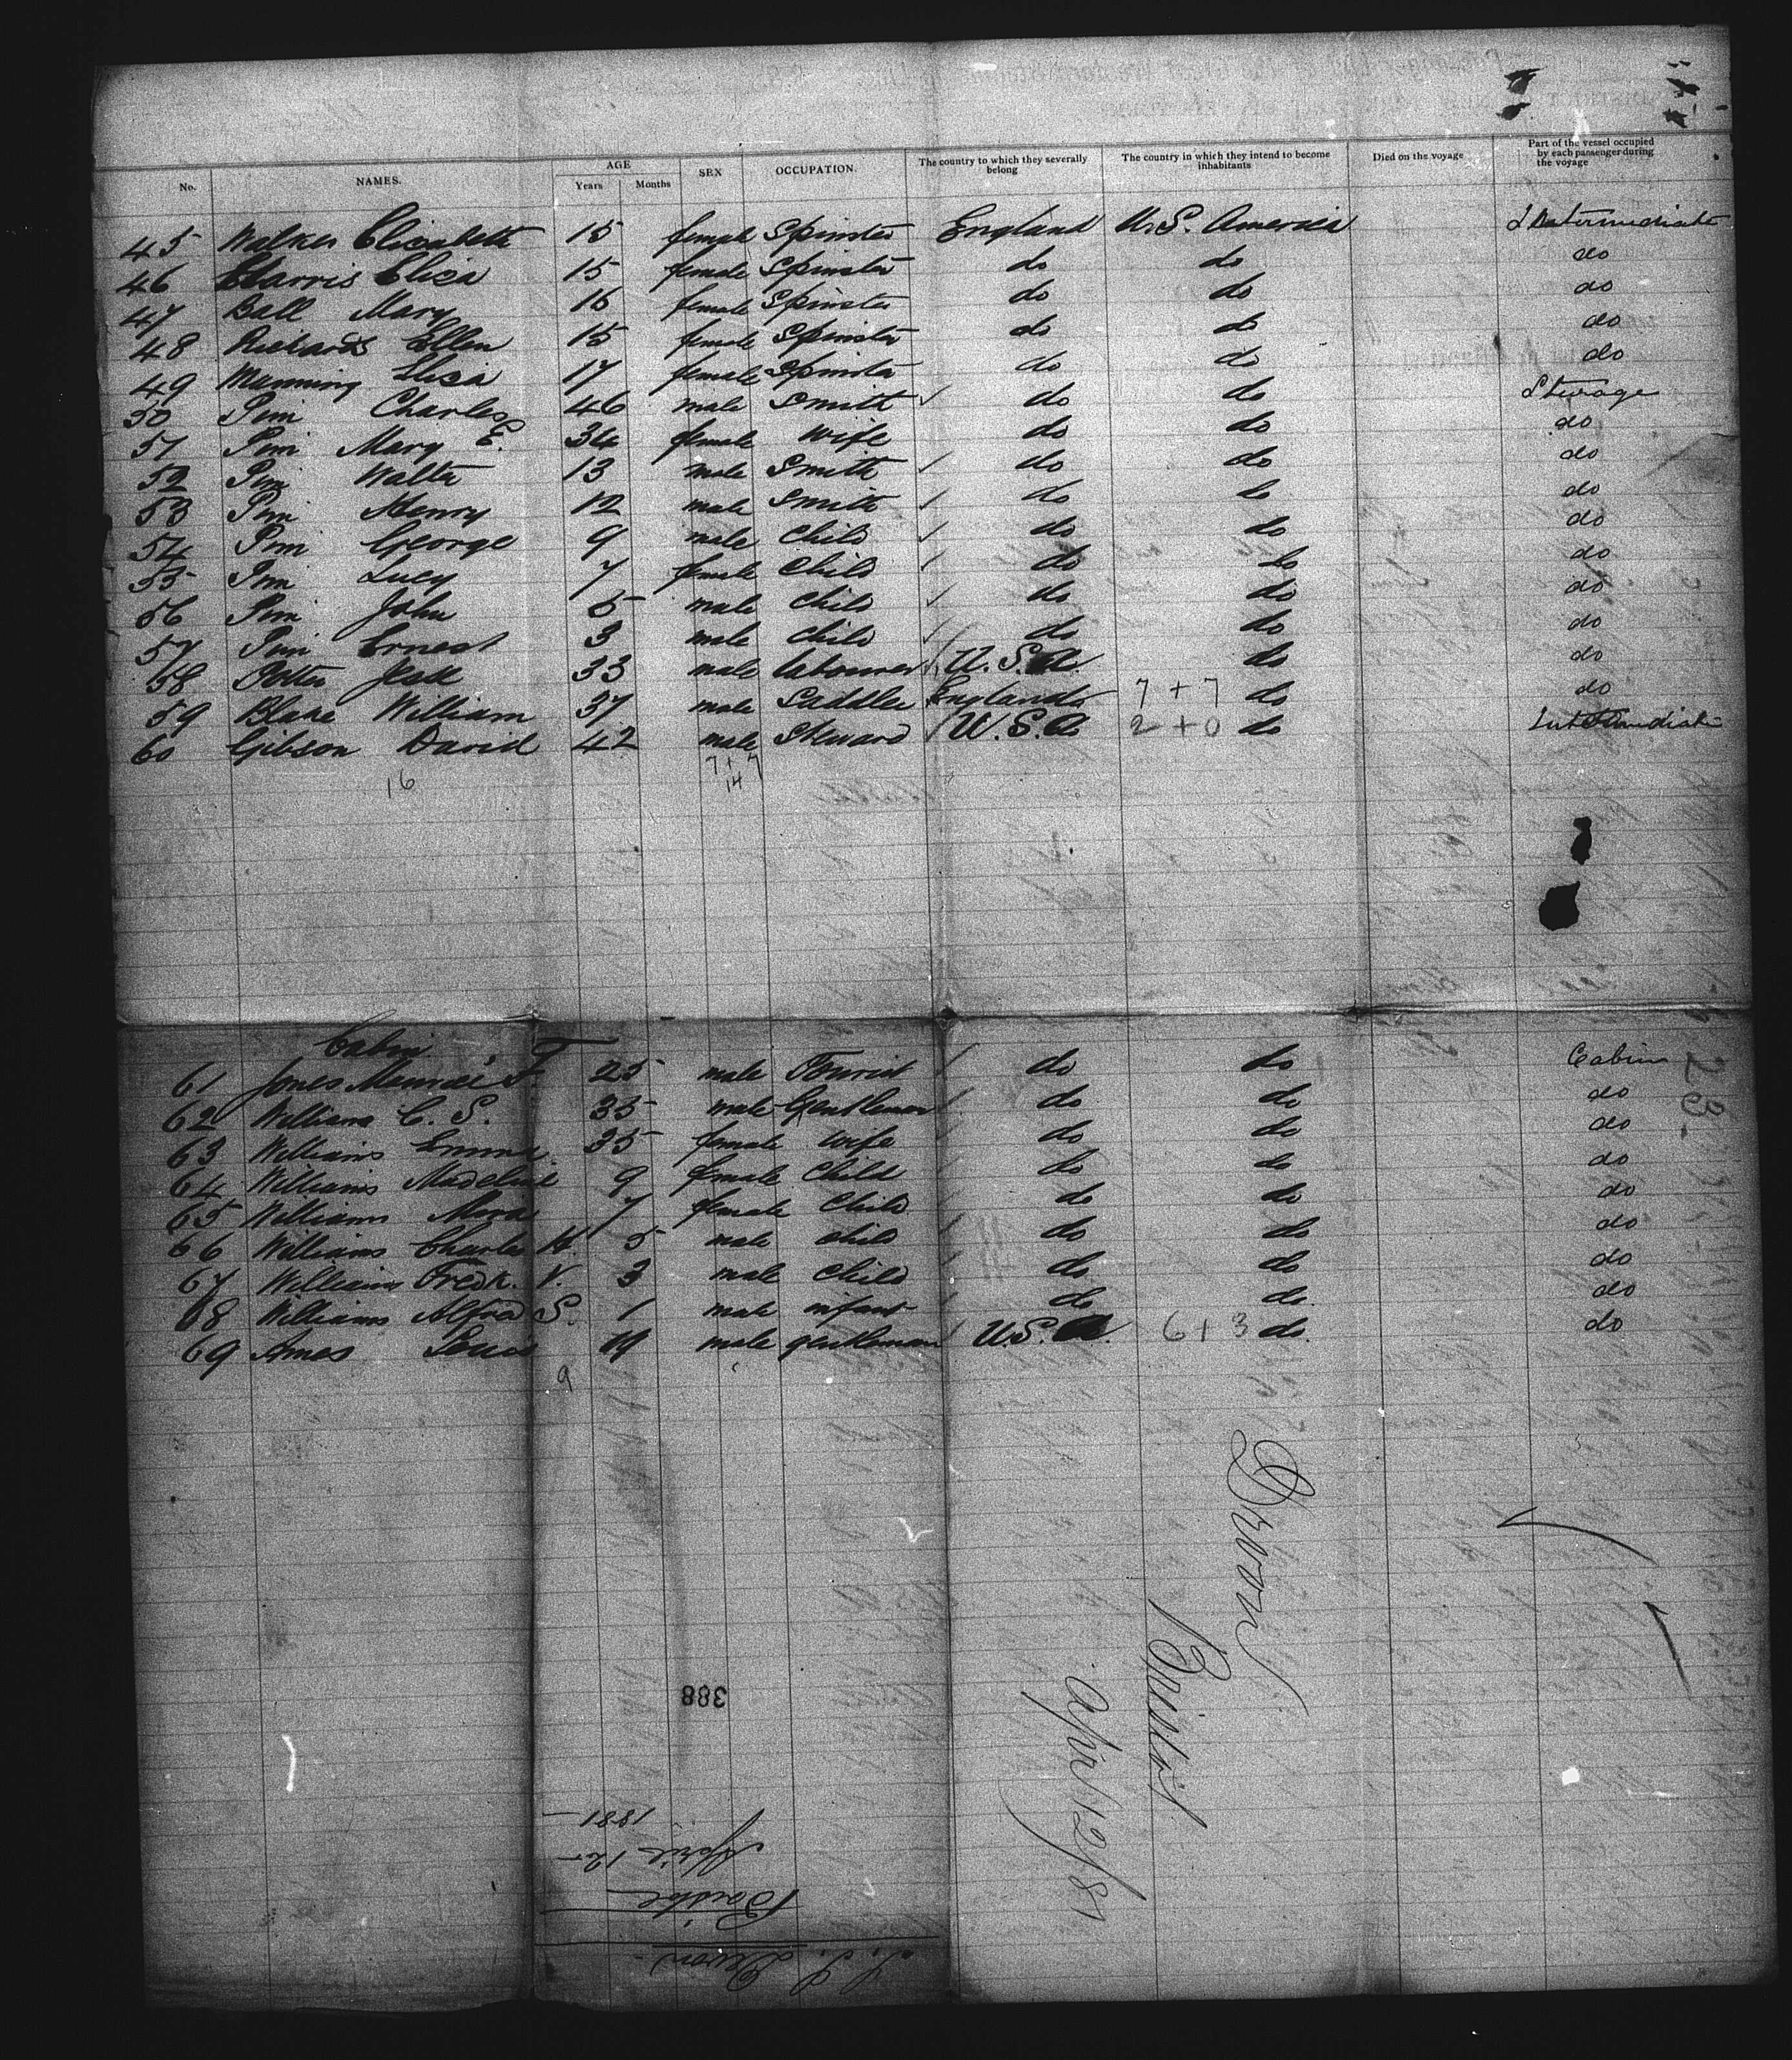 No. NAMES. AGE Years Months SEX OCCUPATION. The country to which they severally belong The country in which they intend to become inhabitants Died on the voyage Part of the vessel occupied by each passenger during the voyage
45 Walker Elizabeth 15 female Spinster England U.S. America Intermediate
46 Harris Eliza 15 female Spinster do do do
47 Ball Mary 16 female Spinster do do do
48 Richards Ellen 15 female Spinster do do do
49 Manning Eliza 17 female Spinster do do do
50 Pim Charles 46 male Smith do do Steerage
51 Pim Mary E. 34 female Wife do do do
52 Pim Walter 13 male Smith do do do
53 Pim Henry 12 male Smith do do do
54 Pim George 9 male Child do do do
55 Pim Lucy 7 female Child do do do
56 Pim John 5 male Child do do do
57 Pim Ernest 3 male Child do do do
58 Potter 33 male labourer U.S.A. do do
59 Blake William 37 male Saddler England 7 + 7 do do
60 Gibson David 42 male Steward U.S.A 2 + 0 do Intermediate
16 7 + 7
14
Cabin
61 Jones Maurice F. 25 male Tourist do do Cabin
62 Williams C. S. 35 male Gentleman do do do
63 Williams Emma 35 female wife do do do
64 Williams Madeline 9 female Child do do do
65 Williams 7 female Child do do do
66 Williams Charles H. 5 male Child do do do
67 Williams Fredk. V. 3 male Child do do do
68 Williams Alfred S. 1 male infant do do do
69 Ames Louis 19 male gentleman U.S.A. 6 + 3 do. do
9
23
Devon
Bristol
Apr 12/81
388
S. S. Devon
Bristol
April 12
1881